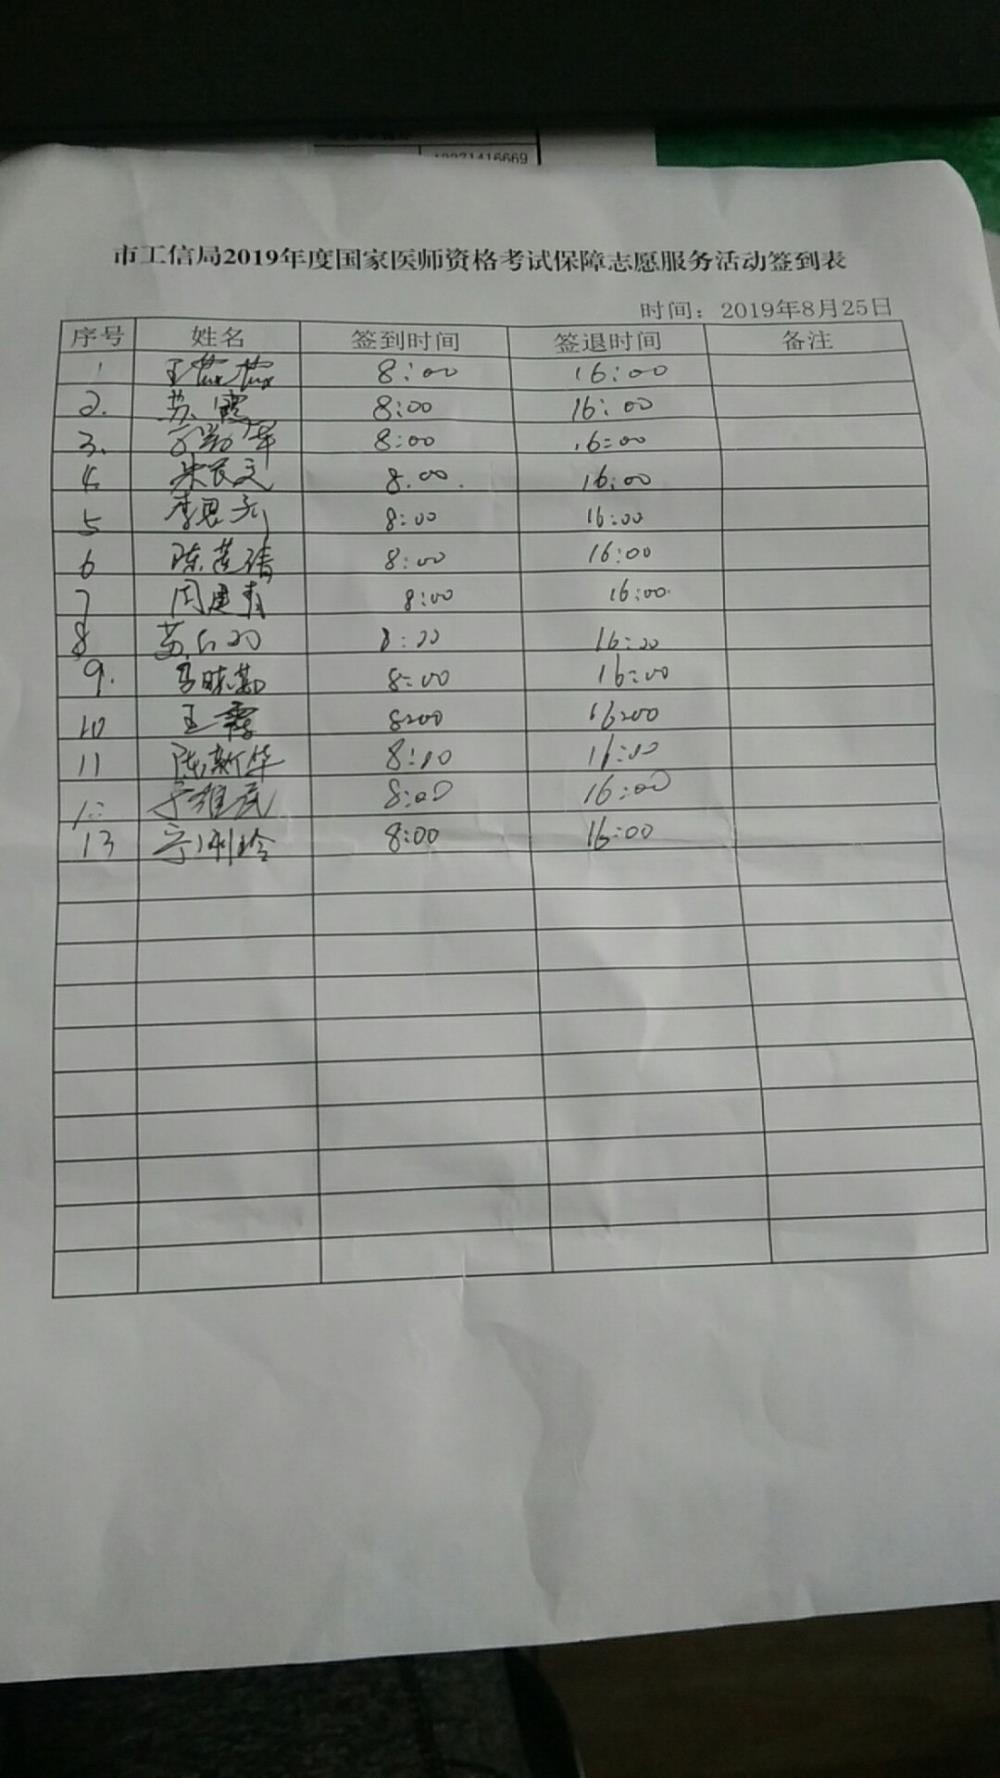 市工信局2019年度国家医师资格考试保障志愿服务活动签到表
时间：2019年8月25日
序号 姓名 签到时间 签退时间 备注
1 王 8:00 16:00
2. 苏霞 8:00 16:00
3. 8:00 16:00
4. 朱 8:00. 16:00
5 李思 8:00 16:00
6 陈莲清 8:00 16:00
7 周建青 8:00 16:00
8 8:00 16:00
9. 马晓勤 8:00 16:00
10 王霞 8:00 16:00
11 陈新华 8:00 16:00
12 8:00 16:00
13 8:00 16:00